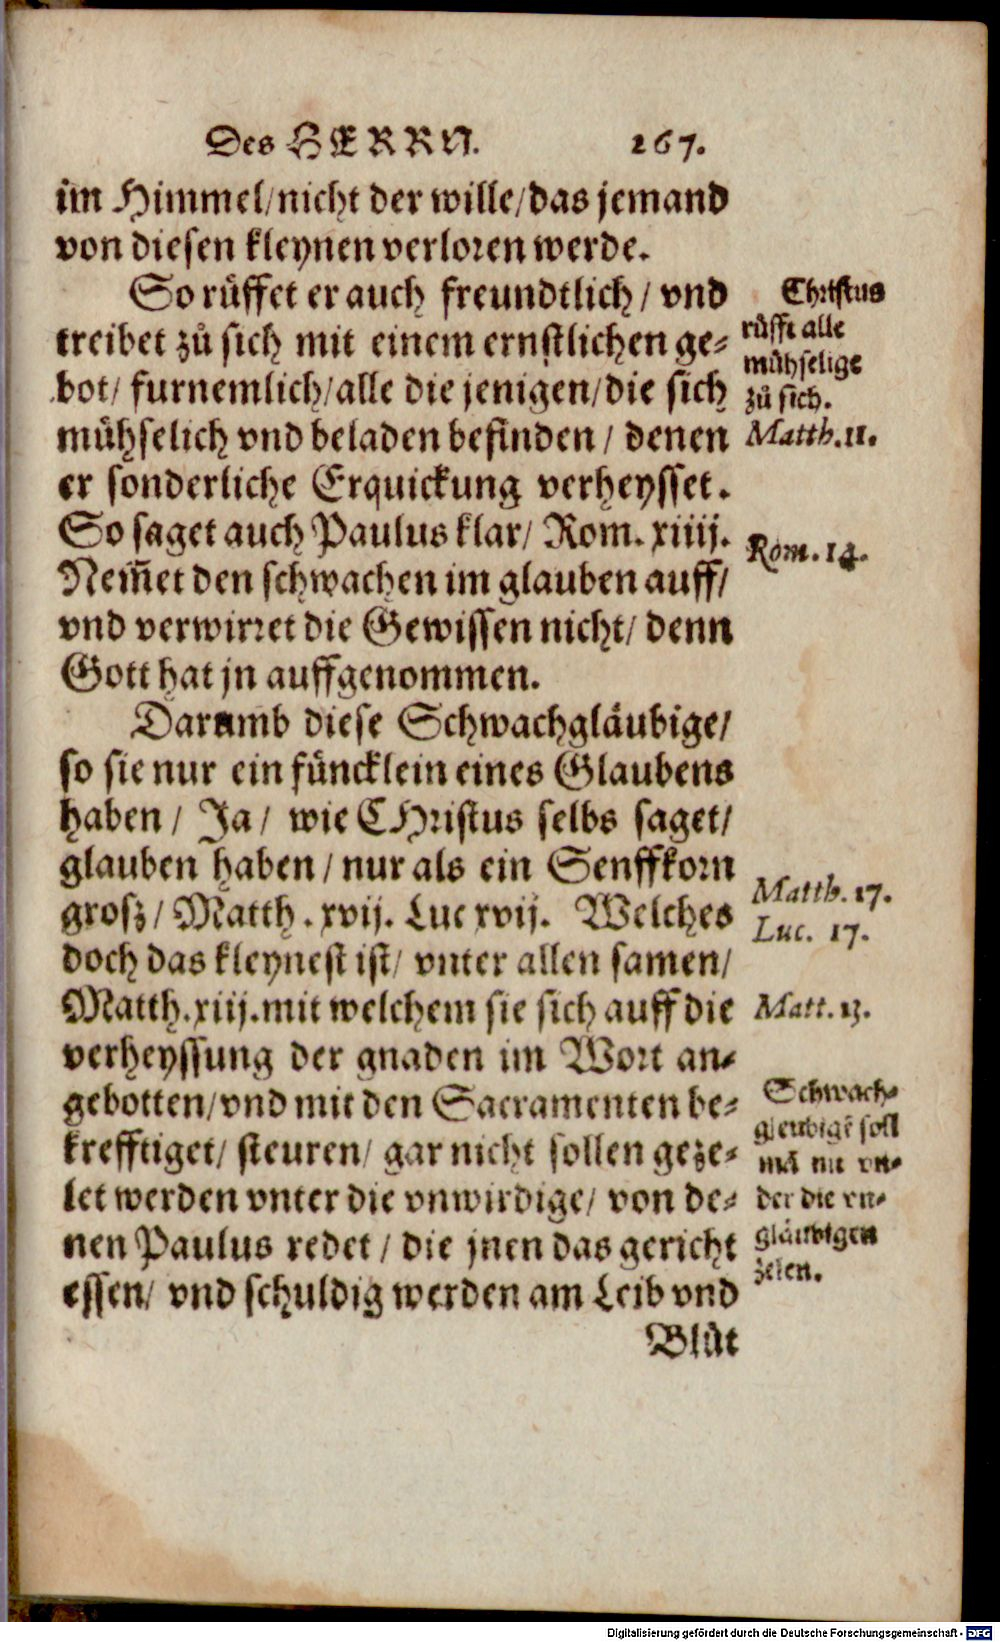 Des HERRN. 267.
im Himmel/nicht der wille/das jemand
von diesen kleynen verloren werde.
So růffet er auch freundtlich/ vnd
treibet zů sich mit einem ernstlichen ge⸗
bot/ furnemlich/alle die jenigen/die sich
mühselich vnd beladen befinden/ denen
er sonderliche Erquickung verheysset.
So saget auch Paulus klar/ Rom. xiiij.
Nem̃et den schwachen im glauben auff/
vnd verwirret die Gewissen nicht/ denn
Gott hat jn auffgenommen.
Darumb diese Schwachgläubige/
so sie nur ein füncklein eines Glaubens
haben/ Ja/ wie CHristus selbs saget/
glauben haben/ nur als ein Senffkorn
grosz/ Matth. xvij. Luc xvij. Welches
doch das kleynest ist/ vnter allen samen/
Matth.xiij.mit welchem sie sich auff die
verheyssung der gnaden im Wort an⸗
gebotten/vnd mit den Sacramenten be⸗
krefftiget/ steuren/ gar nicht sollen geze⸗
let werden vnter die vnwirdige/ von de⸗
nen Paulus redet/ die jnen das gericht
essen/ vnd schuldig werden am Leib vnd
Blůt
Christus
růfft alle
mühselige
zů sich.
Matth.11.
Rom.14.
Matth.17.
Luc. 17.
Matt.13.
Schwach⸗
gleubigẽ soll
mã nit vn⸗
der die vn⸗
gläubigen
zelen.
Digitalisierung gefördert durch die Deutsche Forschungsgemeinschaft - DFG